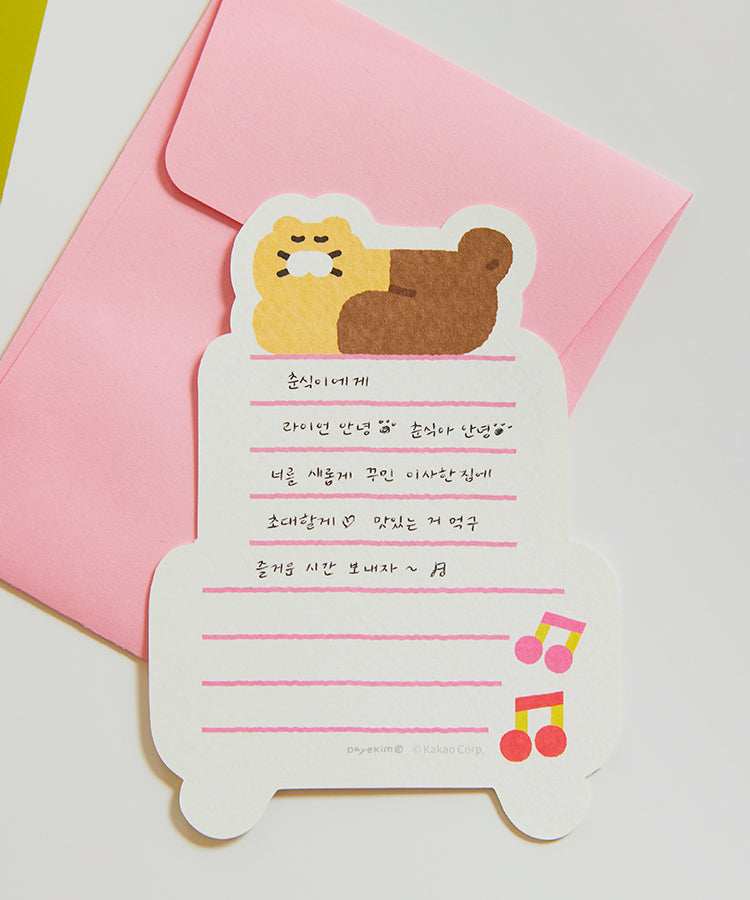 춘식이에게
라이언 안녕 춘식아 안녕
너를 새롭게 꾸민 이사한 집에
초대할게♡ 맛있는 거 먹구
즐거운 시간 보내자~ ♫
Dayekim© © Kakao Corp.